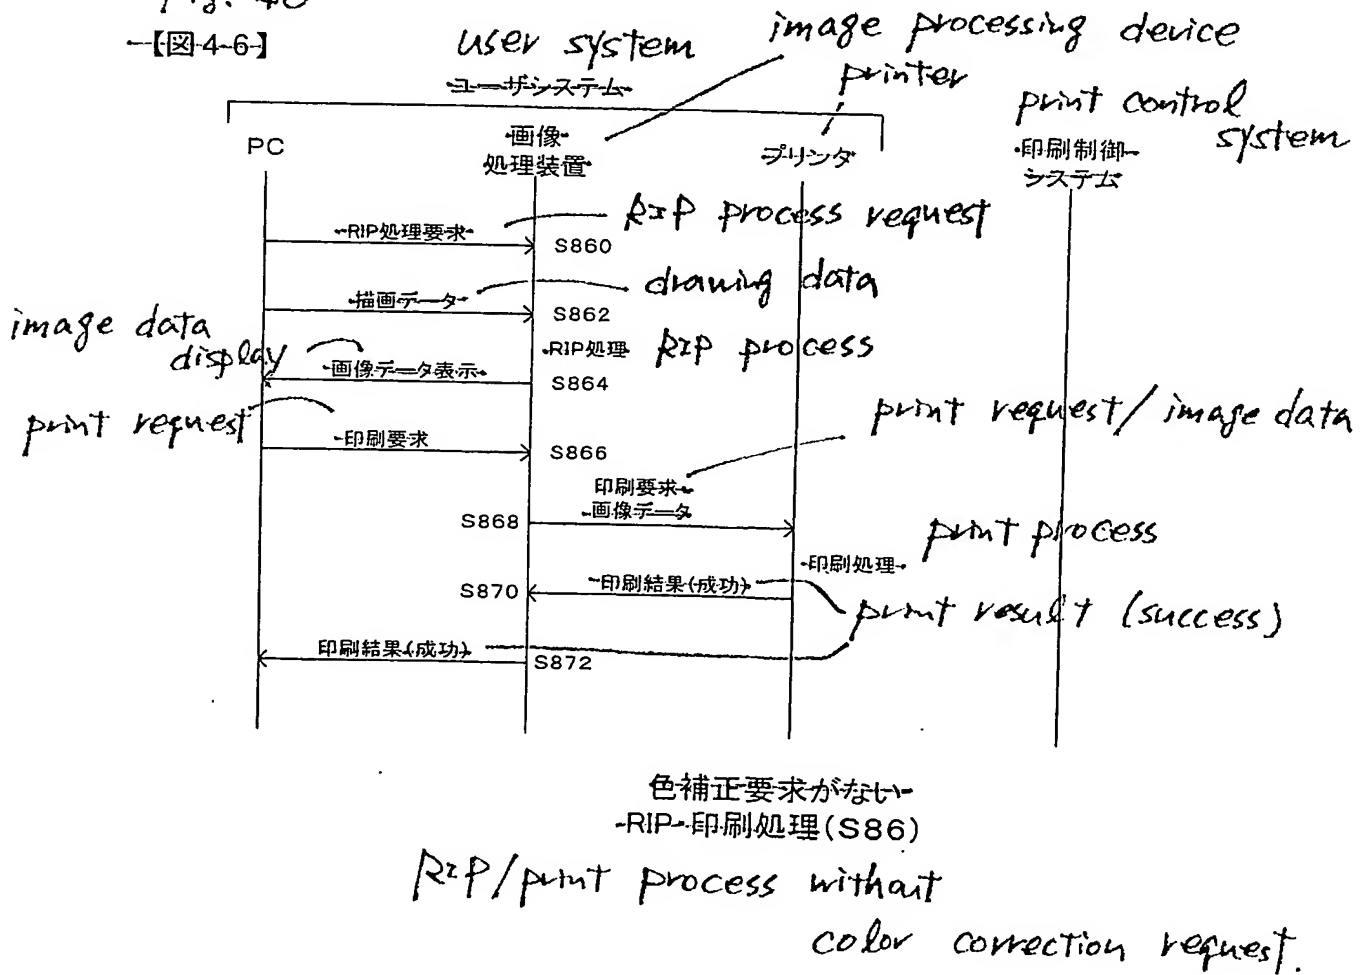 Fig. 46
【図46】
user system
image processing device
ユーザシステム
printer
print control
system
PC
画像
処理装置
プリンタ
印刷制御
システム
RIP処理要求
RIP process request
S860
描画データ
drawing data
S862
image data
display
RIP処理
RIP process
画像データ表示
S864
print request
print request/image data
印刷要求
S866
印刷要求
画像データ
S868
print process
印刷処理
S870
印刷結果(成功)
print result (success)
印刷結果(成功)
S872
色補正要求がない
RIP・印刷処理(S86)
RIP/print process without
color correction request.